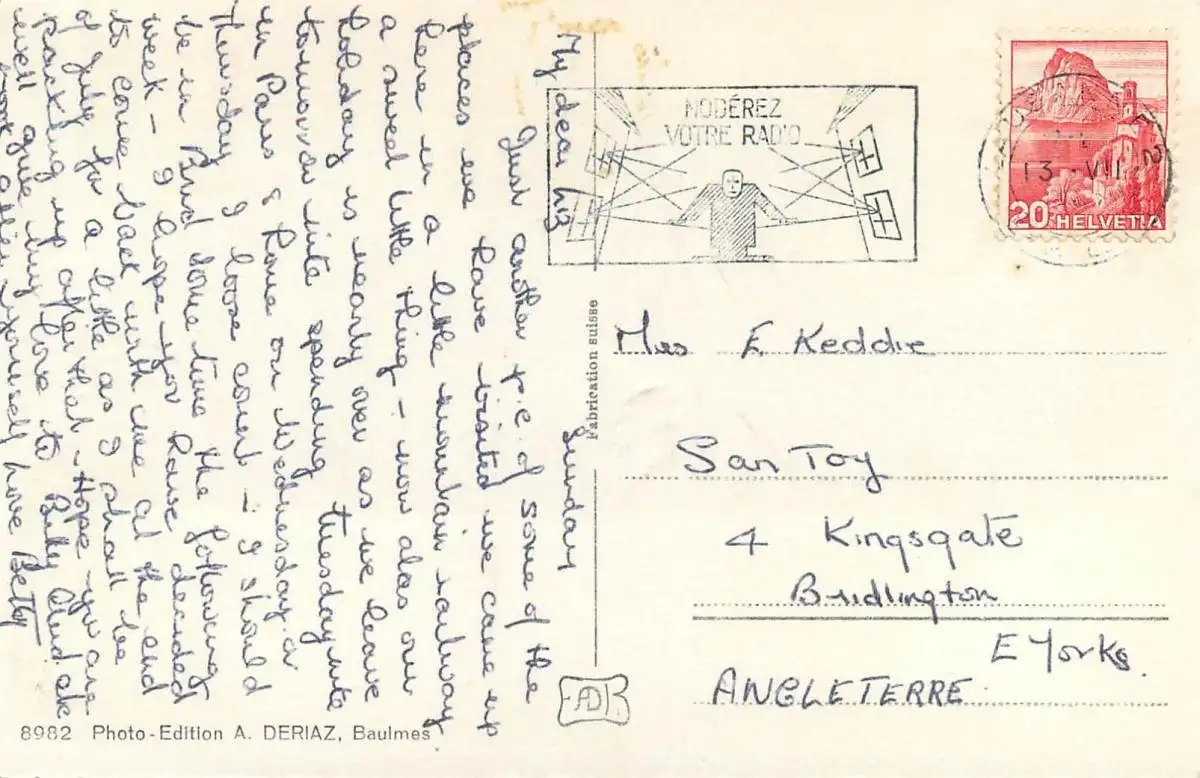 My dear Liz
Sunday
Just another p.c. of some of the
places we have visited we came up
here in a little mountain railway
a sweet little thing - now alas our
holiday is nearly over as we leave
tomorrow nite spending tuesday nite
in Paris & home on Wednesday or
thursday I loose count - I should
be in Brid some time the following
week - I hope you have decided
to come back with me at the end
of July for a little as I shall be
packing up after that - Hope you are
well give my love to Billy
look after yourself love Betty
8982 Photo-Edition A. DERIAZ, Baulmes
Fabrication suisse
MODÉREZ
VOTRE RADIO
13 VII
20 HELVETIA
Mrs E Keddie
San Toy
4 Kingsgate
Bridlington
E Yorks
ANGLETERRE